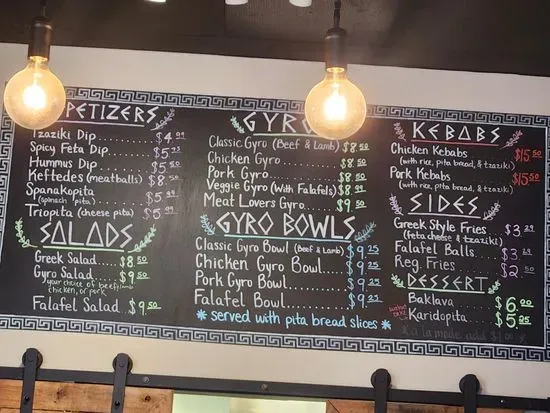 PETIZERS
Tzaziki Dip......... $4.99
Spicy Feta Dip...... $5.
Hummus Dip...... $5.
Keftedes (meatballs) $8.50
Spanakopita
(spinach pita)........ $5.99
Triopita (cheese pita) $5.99
SALADS
Greek Salad........ $8.50
Gyro Salad......... $9.50
your choice of beef/lamb
chicken, or pork
Falafel Salad..... $9.50
GYRO
Classic Gyro (Beef & Lamb) $8.50
Chicken Gyro........... $8.50
Pork Gyro................ $8.50
Veggie Gyro (With Falafels) $8.99
Meat Lovers Gyro........ $9.50
GYRO BOWLS
Classic Gyro Bowl (Beef & Lamb) $9.25
Chicken Gyro Bowl.... $9.25
Pork Gyro Bowl......... $9.25
Falafel Bowl............. $9.25
* served with pita bread slices *
KEBABS
Chicken Kebabs ........ $15.50
(with rice, pita bread, & tzaziki)
Pork Kebabs ........... $15.50
(with rice, pita bread, & tzaziki)
SIDES
Greek Style Fries...... $3.29
(feta cheese & tzaziki)
Falafel Balls.......... $3.29
Reg. Fries............. $2.50
DESSERT
Baklava.......... $6.00
walnut cake Karidopita....... $5.25
a la mode add $1.00